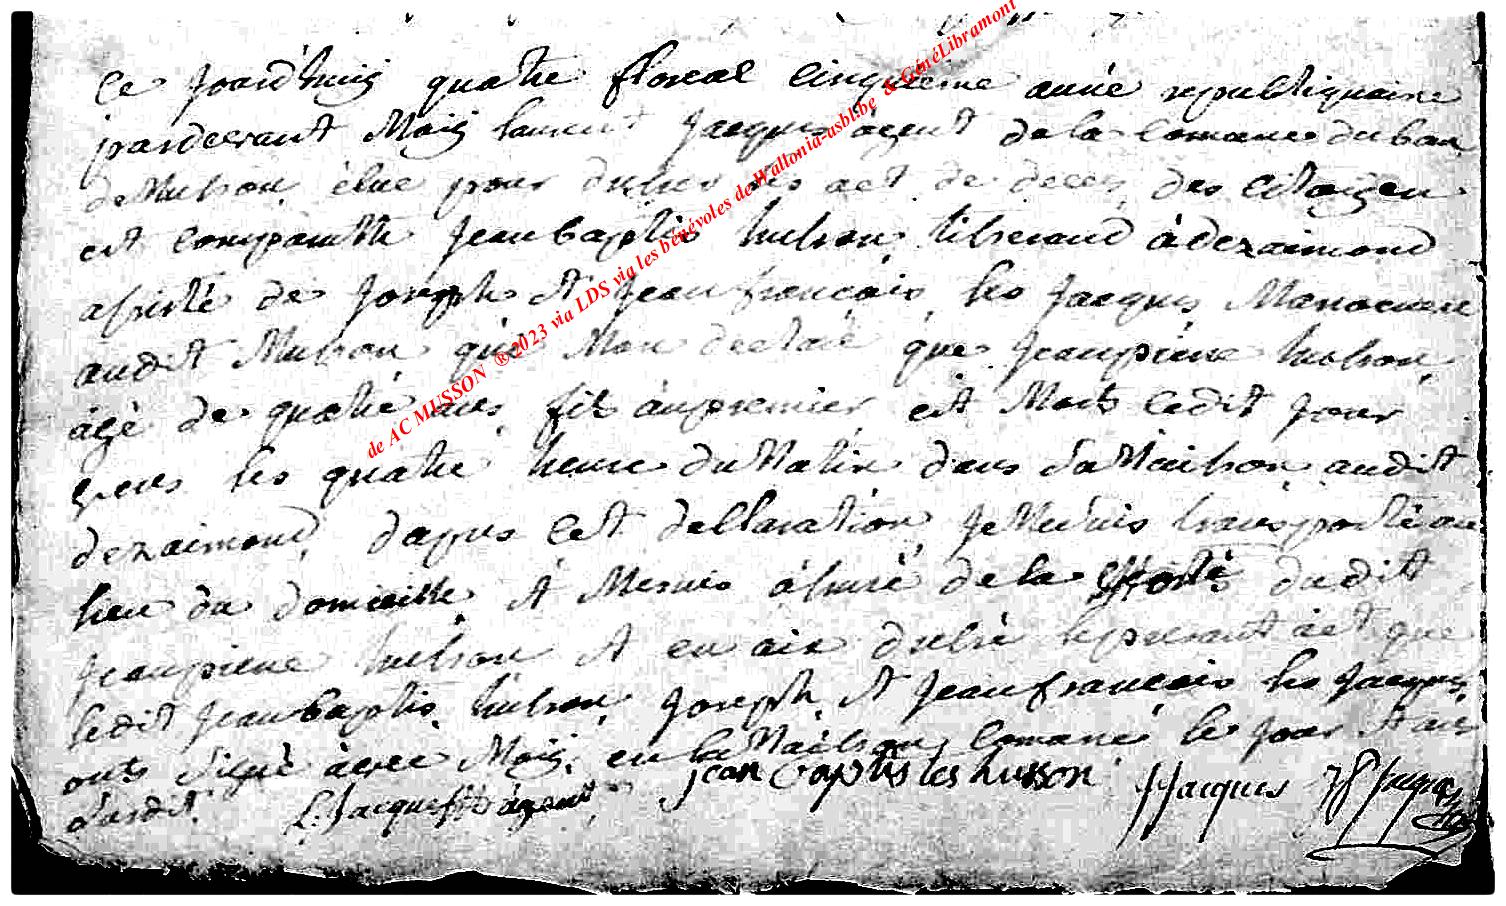 Ce Jourd'huis quatre floreal cinquieme année republiquaine
pardevant Mois laurent Jacques agent de la Comune du ban
de Musson élue pour les act de deces des Citoyen
est comparutte Jean baptis husson tisserand à dezaimond
asisté de Joseph et Jean françois les Jacques Manoeuvre
audit Musson qui Mon declaré que Jeanpierre husson
âgé de quatre ans fils au premier est Morts ledit jour
vers les quatre heure du Matin dans sa Maison audit
dezaimond dapres cet decllaration Je transporté au
lieu du domicille et asuré de la dudit
Jeanpierre husson et en aix le present act que
ledit Jean baptis husson Joseph et Jean françois les Jacques
onts signé avec Mois en la Maison Comune le jour et an
susdit. L. Jacques agent jean baptis les husson J Jacques JF Jacques
de AC MUSSON ® 2023 via LDS via les bénévoles de Wallonia-asbl.be & GénéLibramont